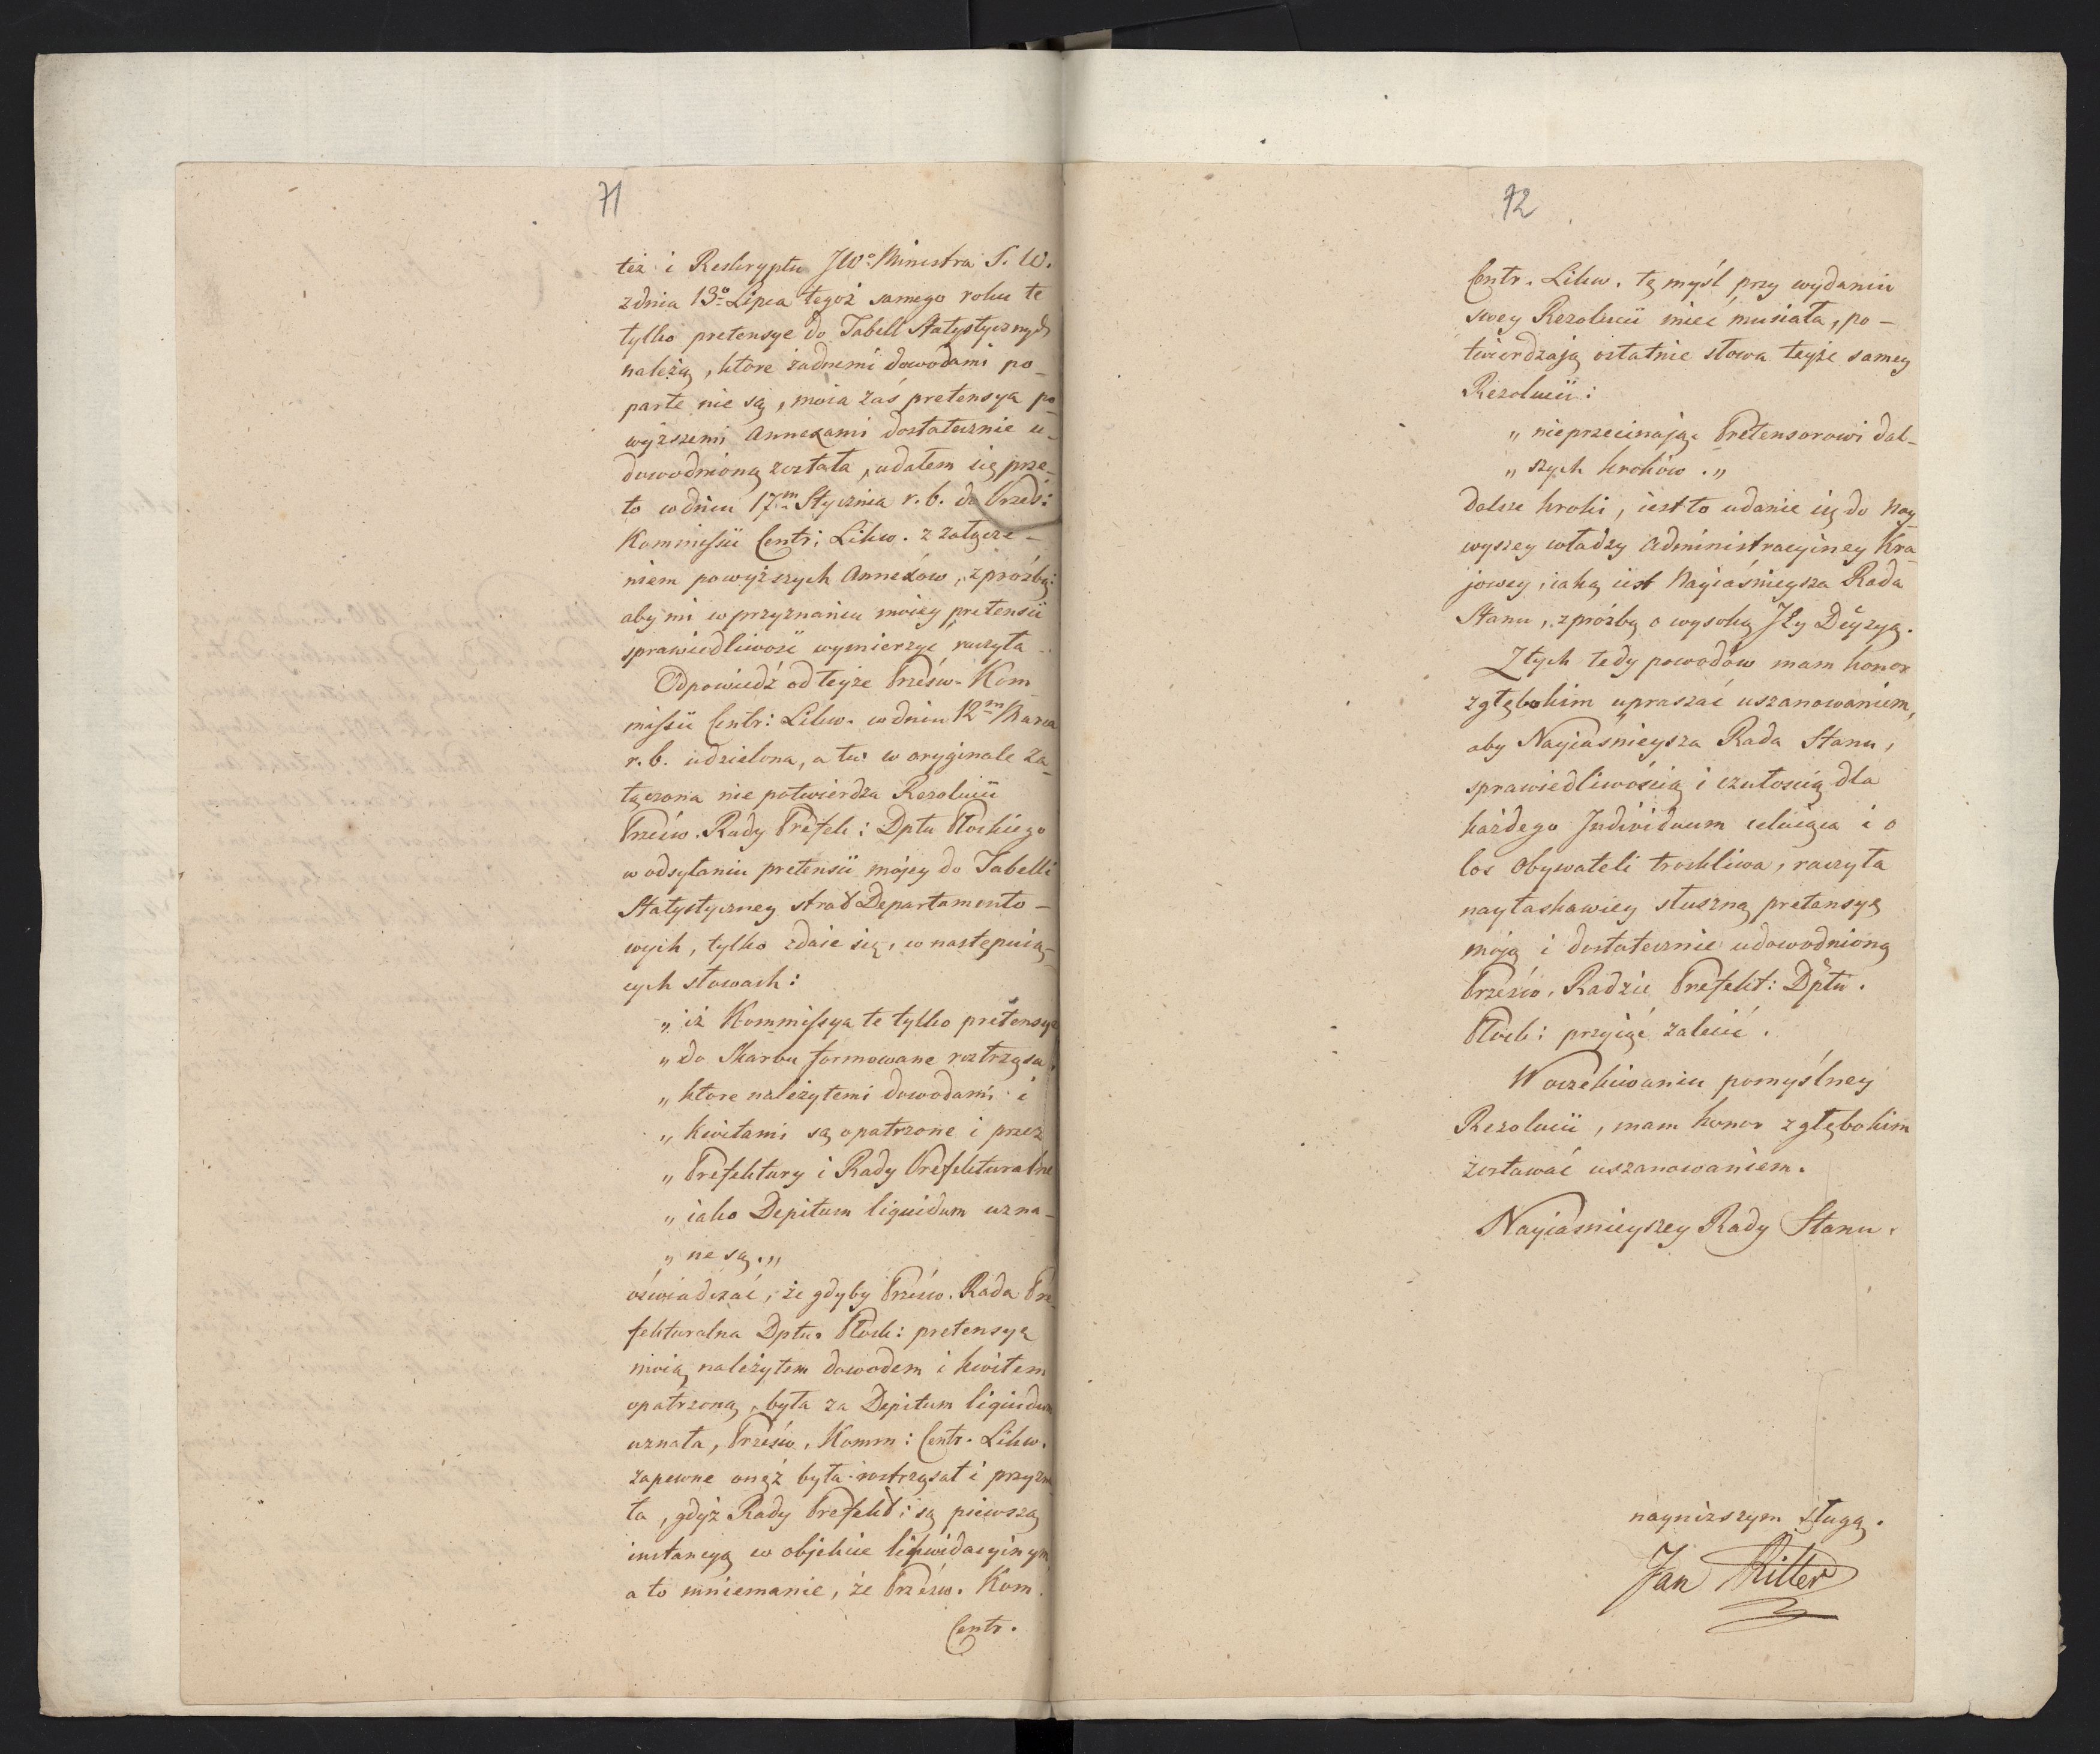 71
też i Reskryptu JWo Ministra S. W.
z dnia 13o Lipca tegoż samego roku te
tylko pretensye do Tabell Statystycznych
należą, ktore żadnemi dowodami po-
parte nie są, moia zaś pretensya po-
wyższemi Annexami dostatecznie u-
dowodnioną została, udałem się prze-
to w dniu 17m Stycznia r. b. do Przeds:
Kommissii Centr: Likw. z załącze-
niem powyższych Annexów, z prośbą:
aby mi w przyznaniu moiey pretensii
sprawiedliwość wymierzyć raczyła.
Odpowiedź od teyże Prześw. Kom-
missii Centr: Likw. w dniu 12m Marca
r. b. udzielona, a tu w oryginale za-
łączona nie potwierdza Rezolucii
Prześw. Rady Prefek: Dptu Płockiego
w odsyłaniu pretensii mojey do Tabelli
Statystyczney strat Departamento-
wych, tylko zdaie się, w następuią-
cych słowach:
„ iż Kommissya te tylko pretensye
„ do Skarbu formowane roztrząsa,
„ ktore należytemi dowodami i
„ kwitami są opatrzone i przez
„ Prefektury i Rady Prefekturalne
„ iako Depitum liquidum uzna-
„ ne są. „
oświadczać, że gdyby Prześw. Rada Pre-
fekturalna Dptu. Płock: pretensyą
moią należytem dowodem i kwitem
opatrzoną, była za Depitum liquidum
uznała, Prześw. Komm: Centr. Likw.
zapewne onęż była roztrząsał i przyzna-
ła, gdyż Rady Prefekt: są piewszą
instancyą w objekcie likwidacyinym
a to mniemanie, że Prześw. Kom.
Centr.
72
Centr. Likw. tę myśl przy wydaniu
swey Rezolucii mieć musiała, po-
twierdzają ostatnie słowa teyże samey
Rezolucii:
„ nieprzecinając Pretensorowi dal-
„ szych kroków. „
Dalsze kroki, iest to udanie się do Nay-
wyszey władzy administracyiney Kra-
jowey, iaką iest Nayiaśnieysza Rada
Stanu, z prośbą o wysoką JEy Decyzyą.
Z tych tedy powodów mam honor
z głębokim upraszać uszanowaniem,
aby Nayiaśnieysza Rada Stanu,
sprawiedliwością i czułością dla
każdego Individuum celuiąca i o
los Obywateli troskliwa, raczyła
nayłaskawiey słuszną pretensyą
moją i dostatecznie udowodnioną
Prześw. Radzie Prefekt: Dptu.
Płock: przyiąć zalecić.
W oczekiwaniu pomyślney
Rezolucii, mam honor z głębokim
zostawać uszanowaniem.
Nayiaśnieyszey Rady Stanu.
nayniższym sługą.
Jan Ritter